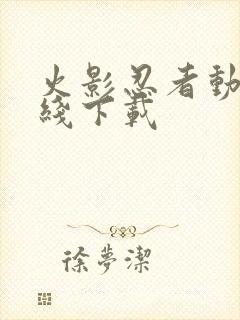 火影忍者動
綫下載
徐夢潔